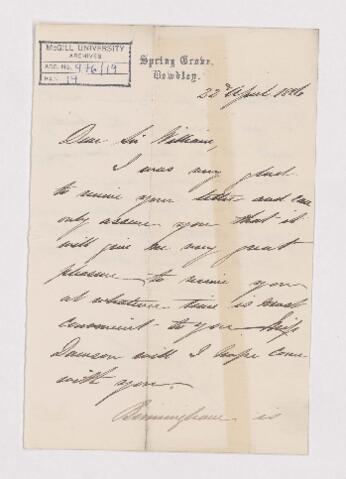 McGILL UNIVERSITY
ARCHIVES
ACC. NO. 976/19
REF. 14
Spring Grove.
Bewdley.
22nd April 1886
Dear Sir William,
I was very glad
to receive your letter and can
only assure you that it
will give me very great
pleasure to receive you
at whatever time is most
convenient to you. Miss
Dawson will I hope come
with you.
Birmingham is